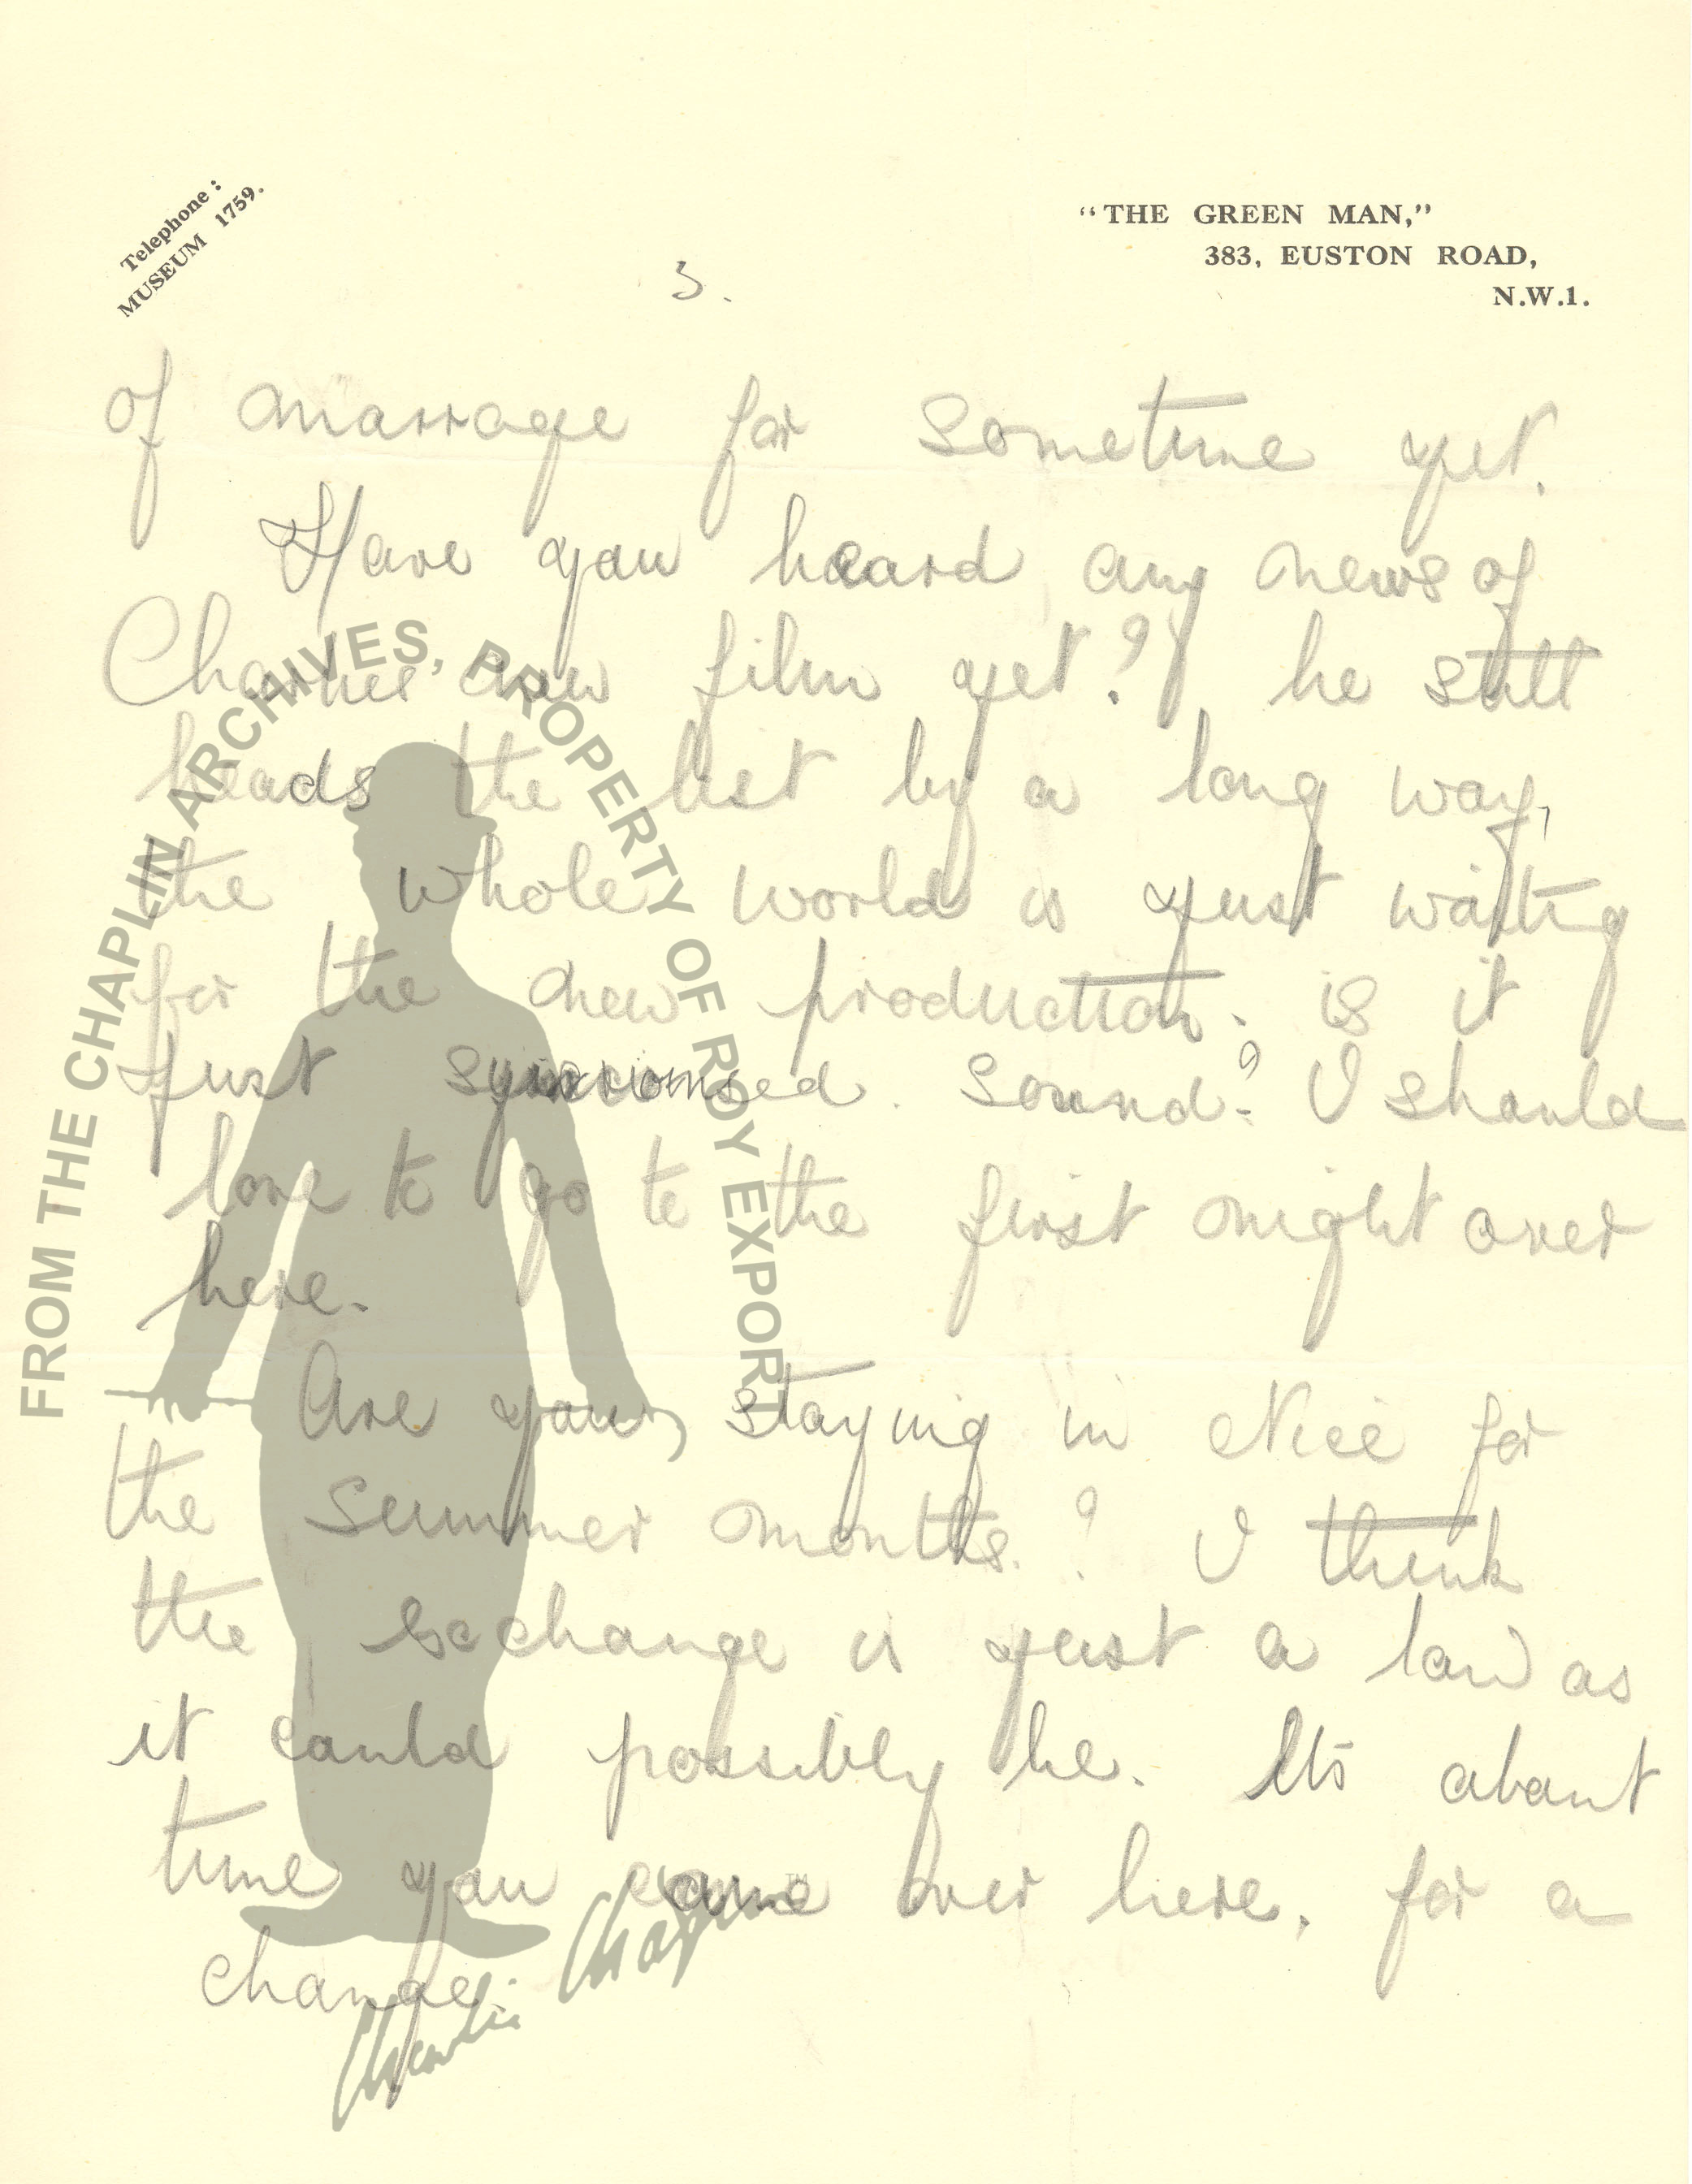 Telephone :
MUSEUM 1759.
"THE GREEN MAN,"
383, EUSTON ROAD,
N.W.1.
3.
of marrage for sometime yet.
Have you heard any news of
Charlie new film yet? he still
heads the list by a long way,
the whole world is just waitig
for the new production. is it
just sound? I should
love to go to the first night over
here.
Are you, staying in Nice for
the summer months.? I think
the exchange is just a low as
it could possibly be. Its about
time you came over here, for a
change.
FROM THE CHAPLIN ARCHIVES, PROPERTY OF ROY EXPORT
Charlie Chaplin